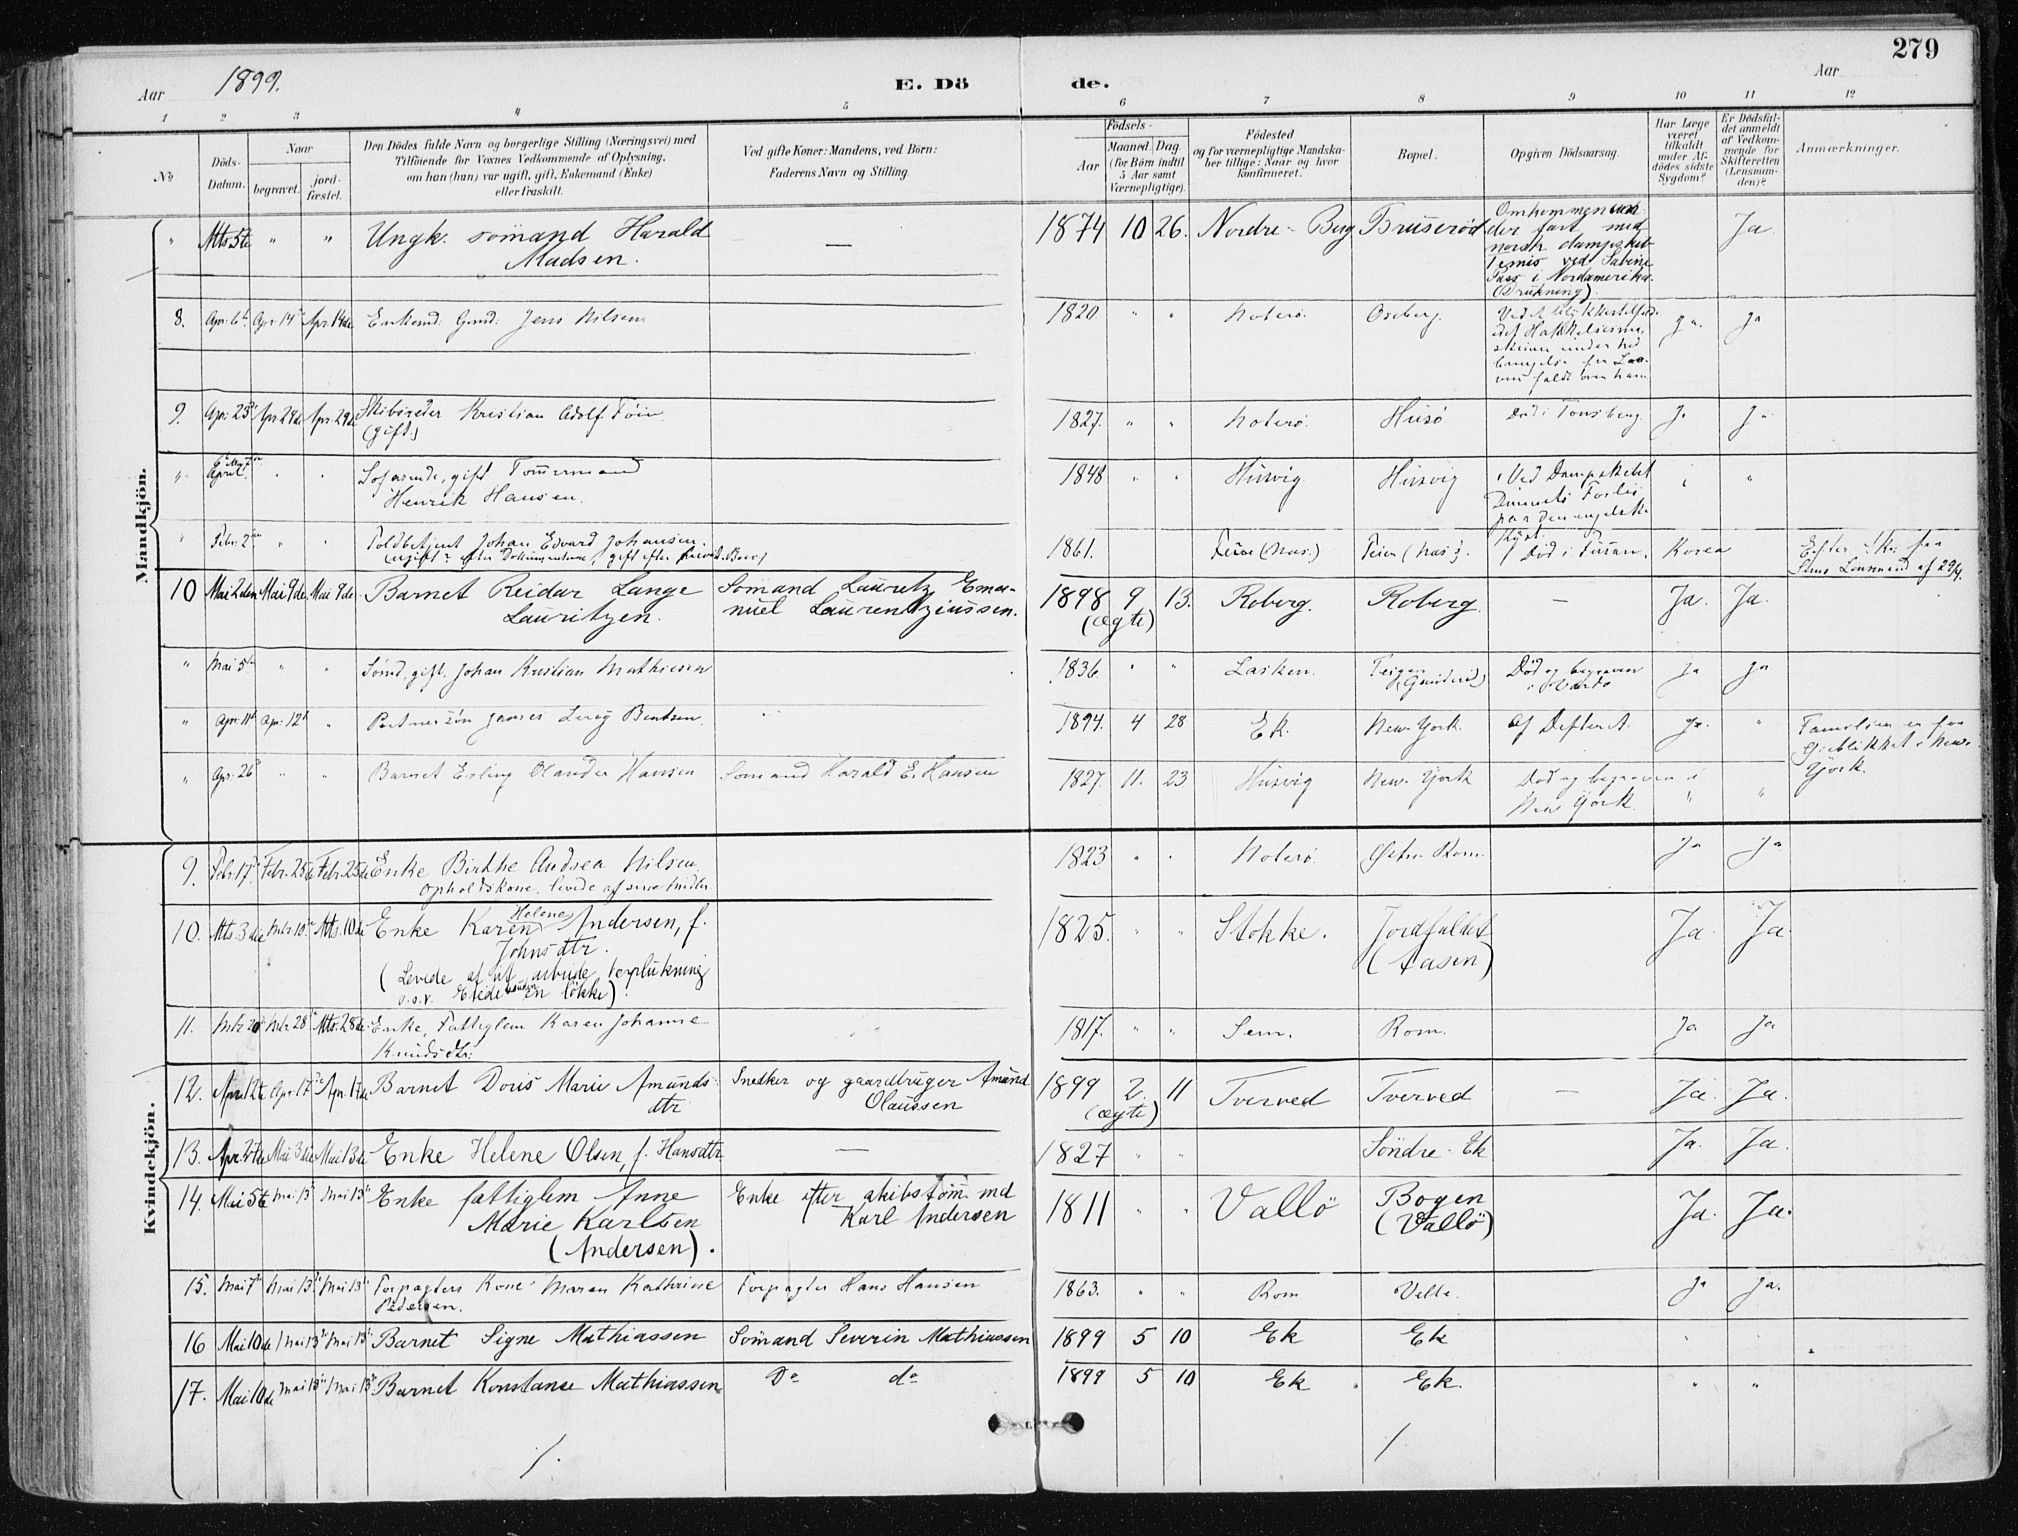 279
Aar 1899. E. Dö de. Aar
1 2 3 4 5 6 7 8 9 10 11 12
No
Döds-Datum.
Naar
begravet.
jord-fæstet.
Den Dödes fulde Navn og borgerlige Stilling (Næringsvei) med
Tilföiende for Voxnes Vedkommende af Oplysning,
om han (hun) var ugift, gift, Enkemand (Enke)
eller fraskilt.
Ved gifte Koner: Mandens, ved Börn:
Faderens Navn og Stilling.
Födsels-
Aar
Maaned. Dag
(for Börn indtil
5 Aar samt
Værnepligtige).
Födested
og for værnepligtige Mandska-
ber tillige: Naar og hvor
konfirmeret.
Bopæl.
Opgiven Dödsaarsag.
Har Læge
været
tilkaldt
under Af-
dödes sidste
Sygdom?
Er Dödsfal-
det anmeldt
af Vedkom-
mende for
Skifteretten
(Lensman-
den)?
Anmærkninger.
Mandkjön.
" Mts. 5te " " Ungk. sömand Harald
Madsen. — 1874 10 26. Nordre-Berg Bruserød
Omkommen
der fart med
norsk dampskib
ved Sabine
Pass i Nordamerika.
(Drukning).
Ja
8. Apr. 6te Apr. 14 Apr. 14de Enkemd. Gmd. Jens Nilsen 1820 " " Noterö. Oseberg.
faldt over ham
Ja. Ja
9. Apr. 23 Apr. 29de Apr. 29de Skibsreder Kristian Adolf Föin
(gift.) 1827. " " Noterö. Husö Död i Tönsberg. Ja Ja
" April " " Söfarende, gift Tömmermand
Henrik Hansen. 1848 " " Husvig Husvig
Ved Dampskibet
Forlis
paa den engelske
Kyst
" Febr. 2den " " Toldbetjent Johan Edvard Johansen.
1861. Död i Fusan, Korea
Efter
Lensmand af 29/4.
10 Mai 2den Mai 9de Mai 9de Barnet Reidar Lange
Lauritzen. Sömand Lauritz Ema-
nuel Laurentziussen. 1898 9 13.
(ægte) Roberg. Roberg. — Ja. Ja.
" Mai 5te " " Sömd, gift. Johan Kristian Mathiesen 1836. " " Död og begraven
i Vardö Ja Ja
" Apr. 11te Apr. 12te " James Leroy Bentsen. 1894. 4 28 Ek. New York. af Difterit. Ja. "
Familien er for
Öieblikket i New-
York.
" Apr. 26 " " Barnet Erling Olander Hansen Sömand Harald E. Hansen 1827. 11. 23 Husvig New York Död og begraven i
New York. " "
Kvindekjön.
9. Febr. 17 Febr. 25de Febr. 25de Enke Birthe Andrea Nilsen
opholdskone, levede af sine midler 1823 " " Noterö. Rom. Ja Ja
10. Mts. 3die Mts. 10de Mts. 10de Enke Karen Helene Andersen, f.
Johnsdtr.
(Levede af
o.s.v. Eiede en lökke). 1825. " " Stokke. Jordfaldet
(Aasen) Ja. Ja.
11. Mts. 20 Mts. 28 Mts. 28de Enke, Fattiglem Karen Johanne
Knudsdtr. 1817. " " Sem. Rom. Ja Ja
12. Apr. 12te Apr. 17 Apr. 17de Barnet Doris Marie Amunds-
dtr Snedker og gaardbruger Amund
Olaussen 1899 2 11
(ægte) Tverved Tverved — Ja. Ja.
13. Apr. 27de Mai 3die Mai 13de Enke Helene Olsen, f. Hansdtr — 1827 " " Söndre-Ek Ja. Ja.
14. Mai 5te Mai 13 Mai 13 Enke fattiglem Anne
Marie Karlsen
(Andersen). Enke efter skibstöm.md
Karl Andersen 1811 " " Vallö Bogen
(Vallö) Ja. Ja.
15. Mai 7 Mai 13 Mai 13 Forpagters Kone Maren Kathrine
Pedersen. Forpagter Hans Hansen 1863. " " Rom Velle. Ja Ja.
16 Mai 10de Mai 13 Mai 13 Barnet Signe Mathiassen Sömand Severin Mathiassen 1899 5 10 Ek Ek
17. Mai 10de Mai 13 Mai 13 Barnet Konstanse Mathiassen Do do 1899 5 10 Ek Ek. " "